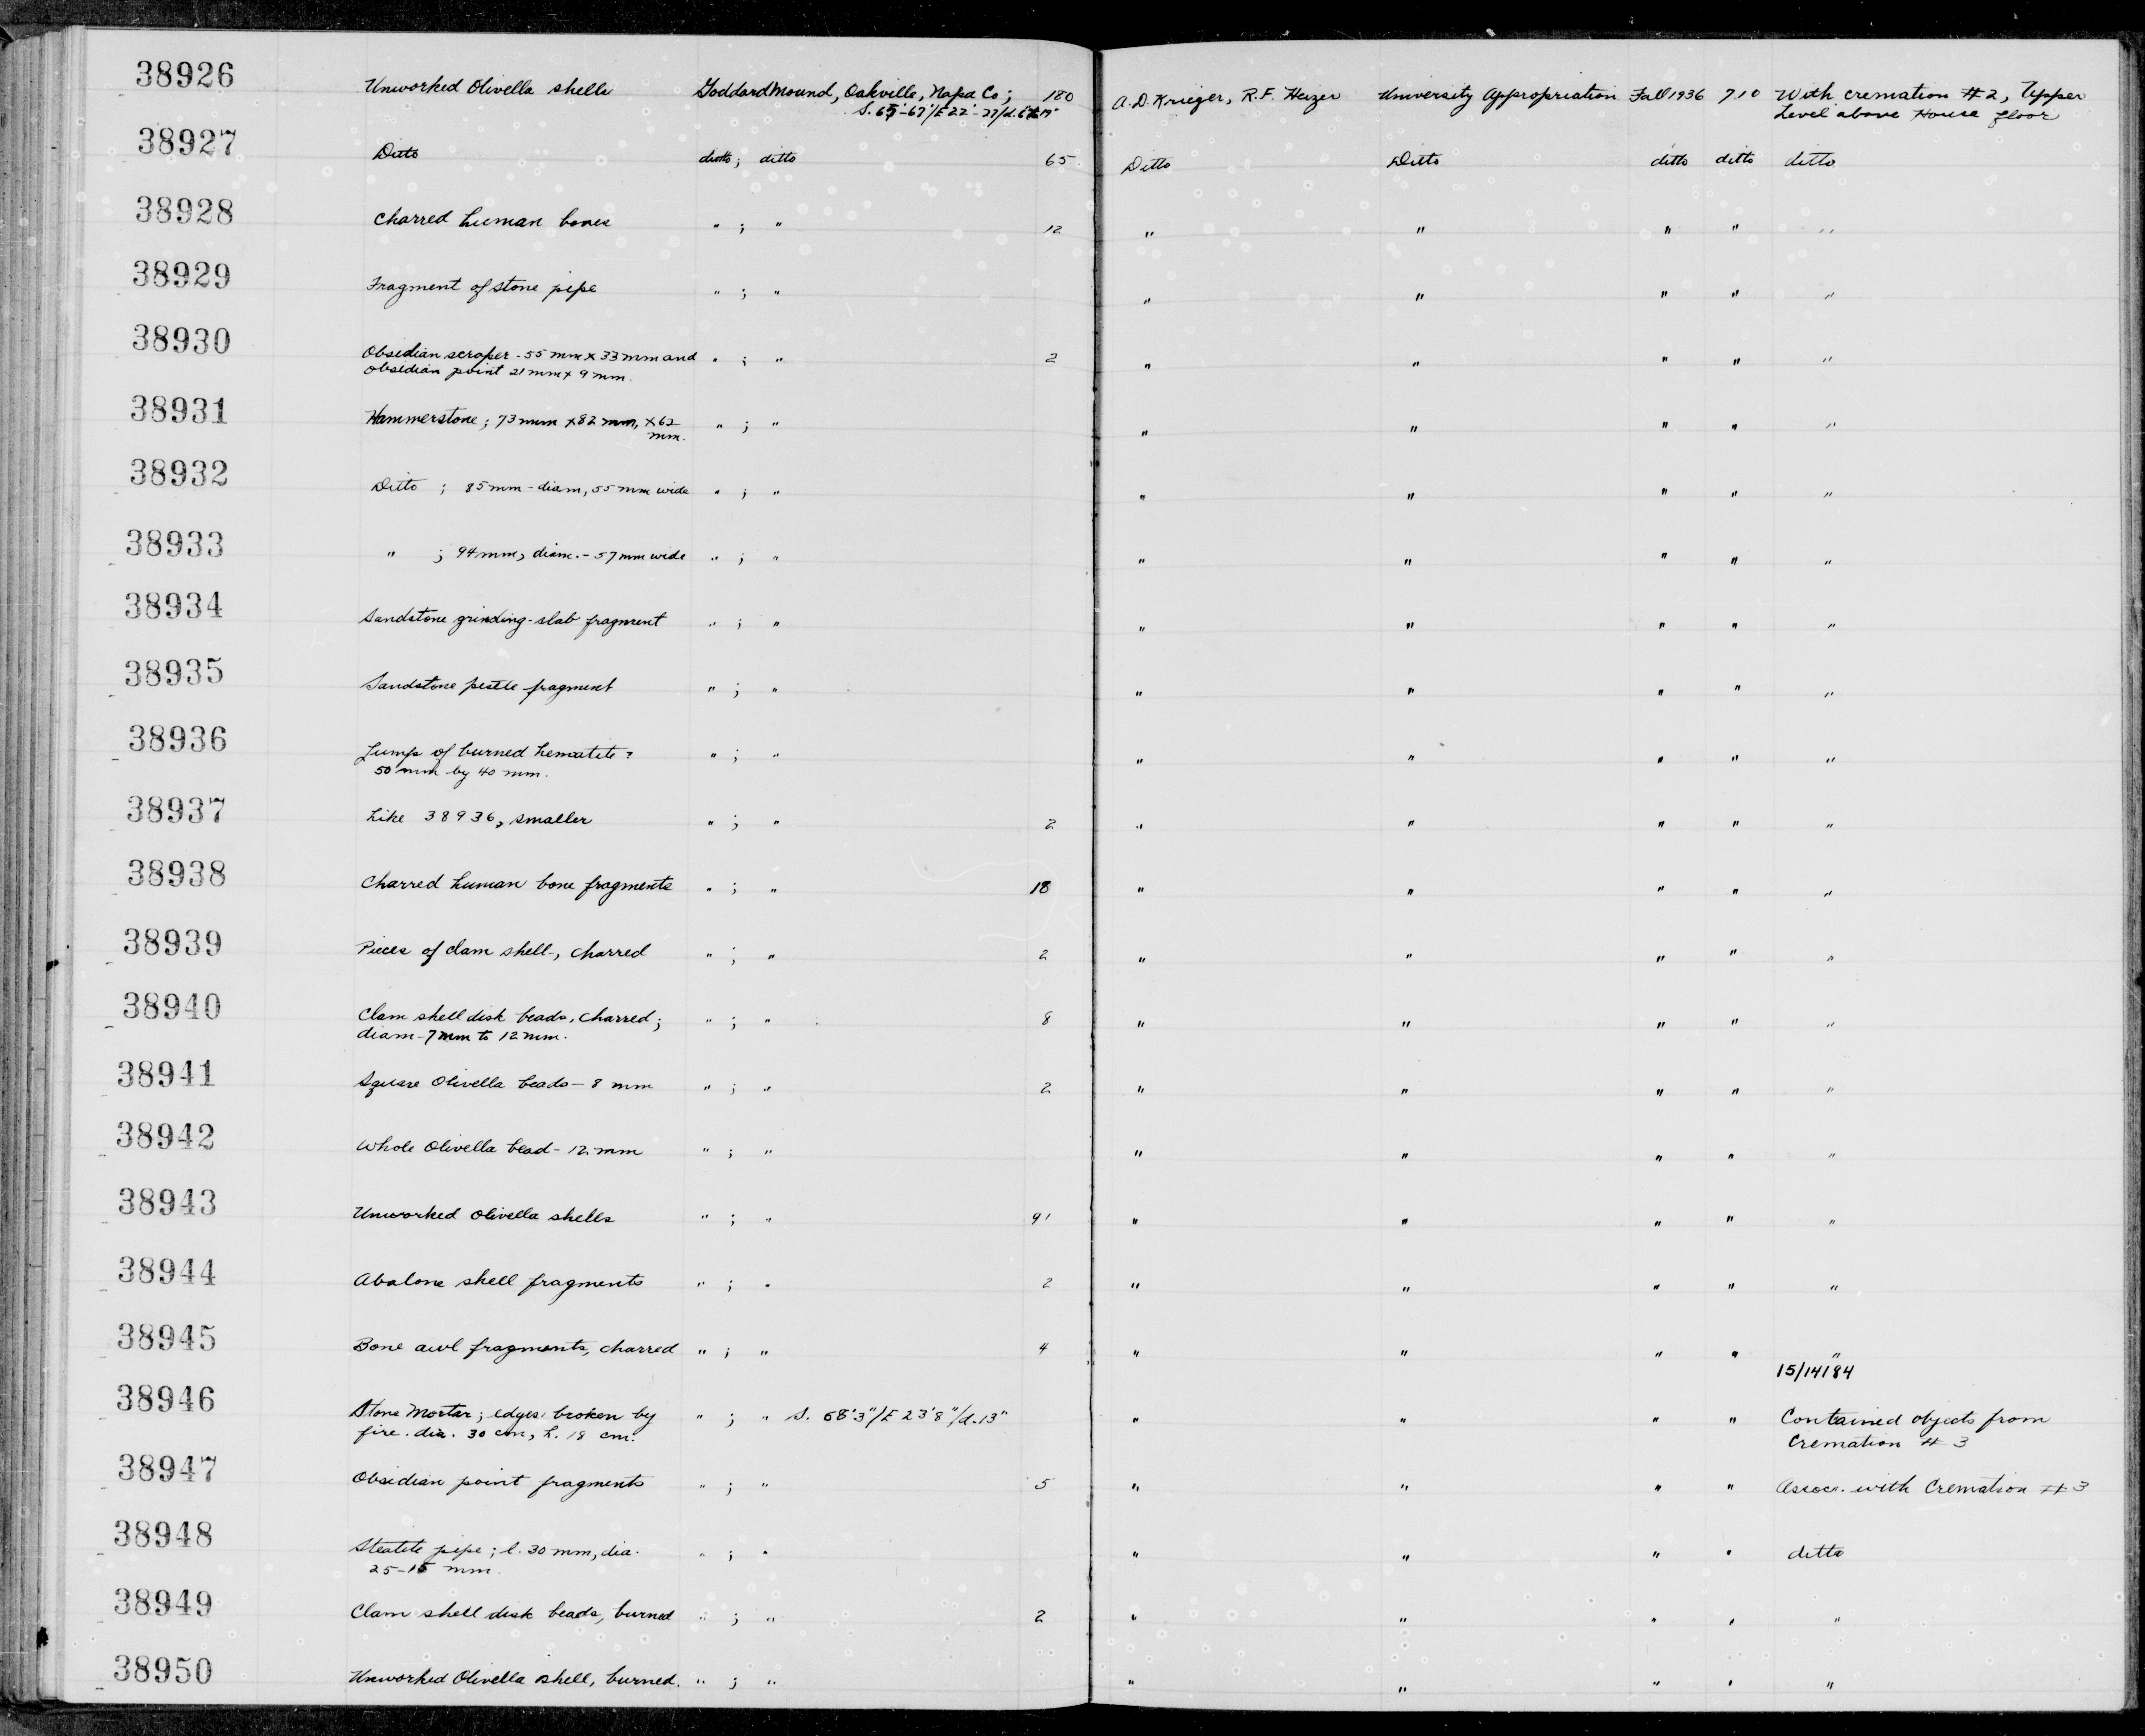 38926 Unworked Olivella shells Goddard Mound, Oakville, Napa Co; 180 A.D. Krieger, R.F. Heizer University Appropriation Fall 1936 710 With cremation #2, Upper
S. 65'-67'/E 22'-27'/d. Level above House floor
38927 Ditto ditto; ditto 65 Ditto Ditto ditto ditto ditto
38928 Charred human bones " ; " 12 " " " " "
38929 Fragment of stone pipe " ; " " " " " "
38930 Obsidian scraper - 55 mm x 33 mm and " ; " 2 " " " " "
obsidian point 21 mm x 9 mm.
38931 Hammerstone; 73 mm x 82 mm, x 62 " ; " " " " " "
mm.
38932 Ditto ; 85 mm - diam, 55 mm wide " ; " " " " " "
38933 " ; 94 mm, diam. - 57 mm wide " ; " " " " " "
38934 Sandstone grinding-slab fragment " ; " " " " " "
38935 Sandstone pestle fragment " ; " " " " " "
38936 Lump of burned hematite? " ; " " " " " "
50 mm by 40 mm.
38937 Like 38936, smaller " ; " 2 " " " " "
38938 Charred human bone fragments " ; " 18 " " " " "
38939 Pieces of clam shell, charred " ; " 2 " " " " "
38940 Clam shell disk beads, charred; " ; " 8 " " " " "
diam - 7 mm to 12 mm.
38941 Square Olivella beads - 8 mm " ; " 2 " " " " "
38942 Whole Olivella bead - 12 mm " ; " " " " " "
38943 Unworked Olivella shells " ; " 91 " " " " "
38944 Abalone shell fragments " ; " 2 " " " " "
38945 Bone awl fragments, charred " ; " 4 " " " " "
15/14184
38946 Stone Mortar; edges broken by " ; " S. 68'3"/E 23'8"/d. 13" " " " " Contained objects from
fire. dia. 30 cm, h. 18 cm. Cremation #3
38947 Obsidian point fragments " ; " 5 " " " " Assoc. with Cremation #3
38948 Steatite pipe; l. 30 mm, dia. " ; " " " " " ditto
25-15 mm.
38949 Clam shell disk beads, burned " ; " 2 " " " " "
38950 Unworked Olivella shell, burned. " ; " " " " " "